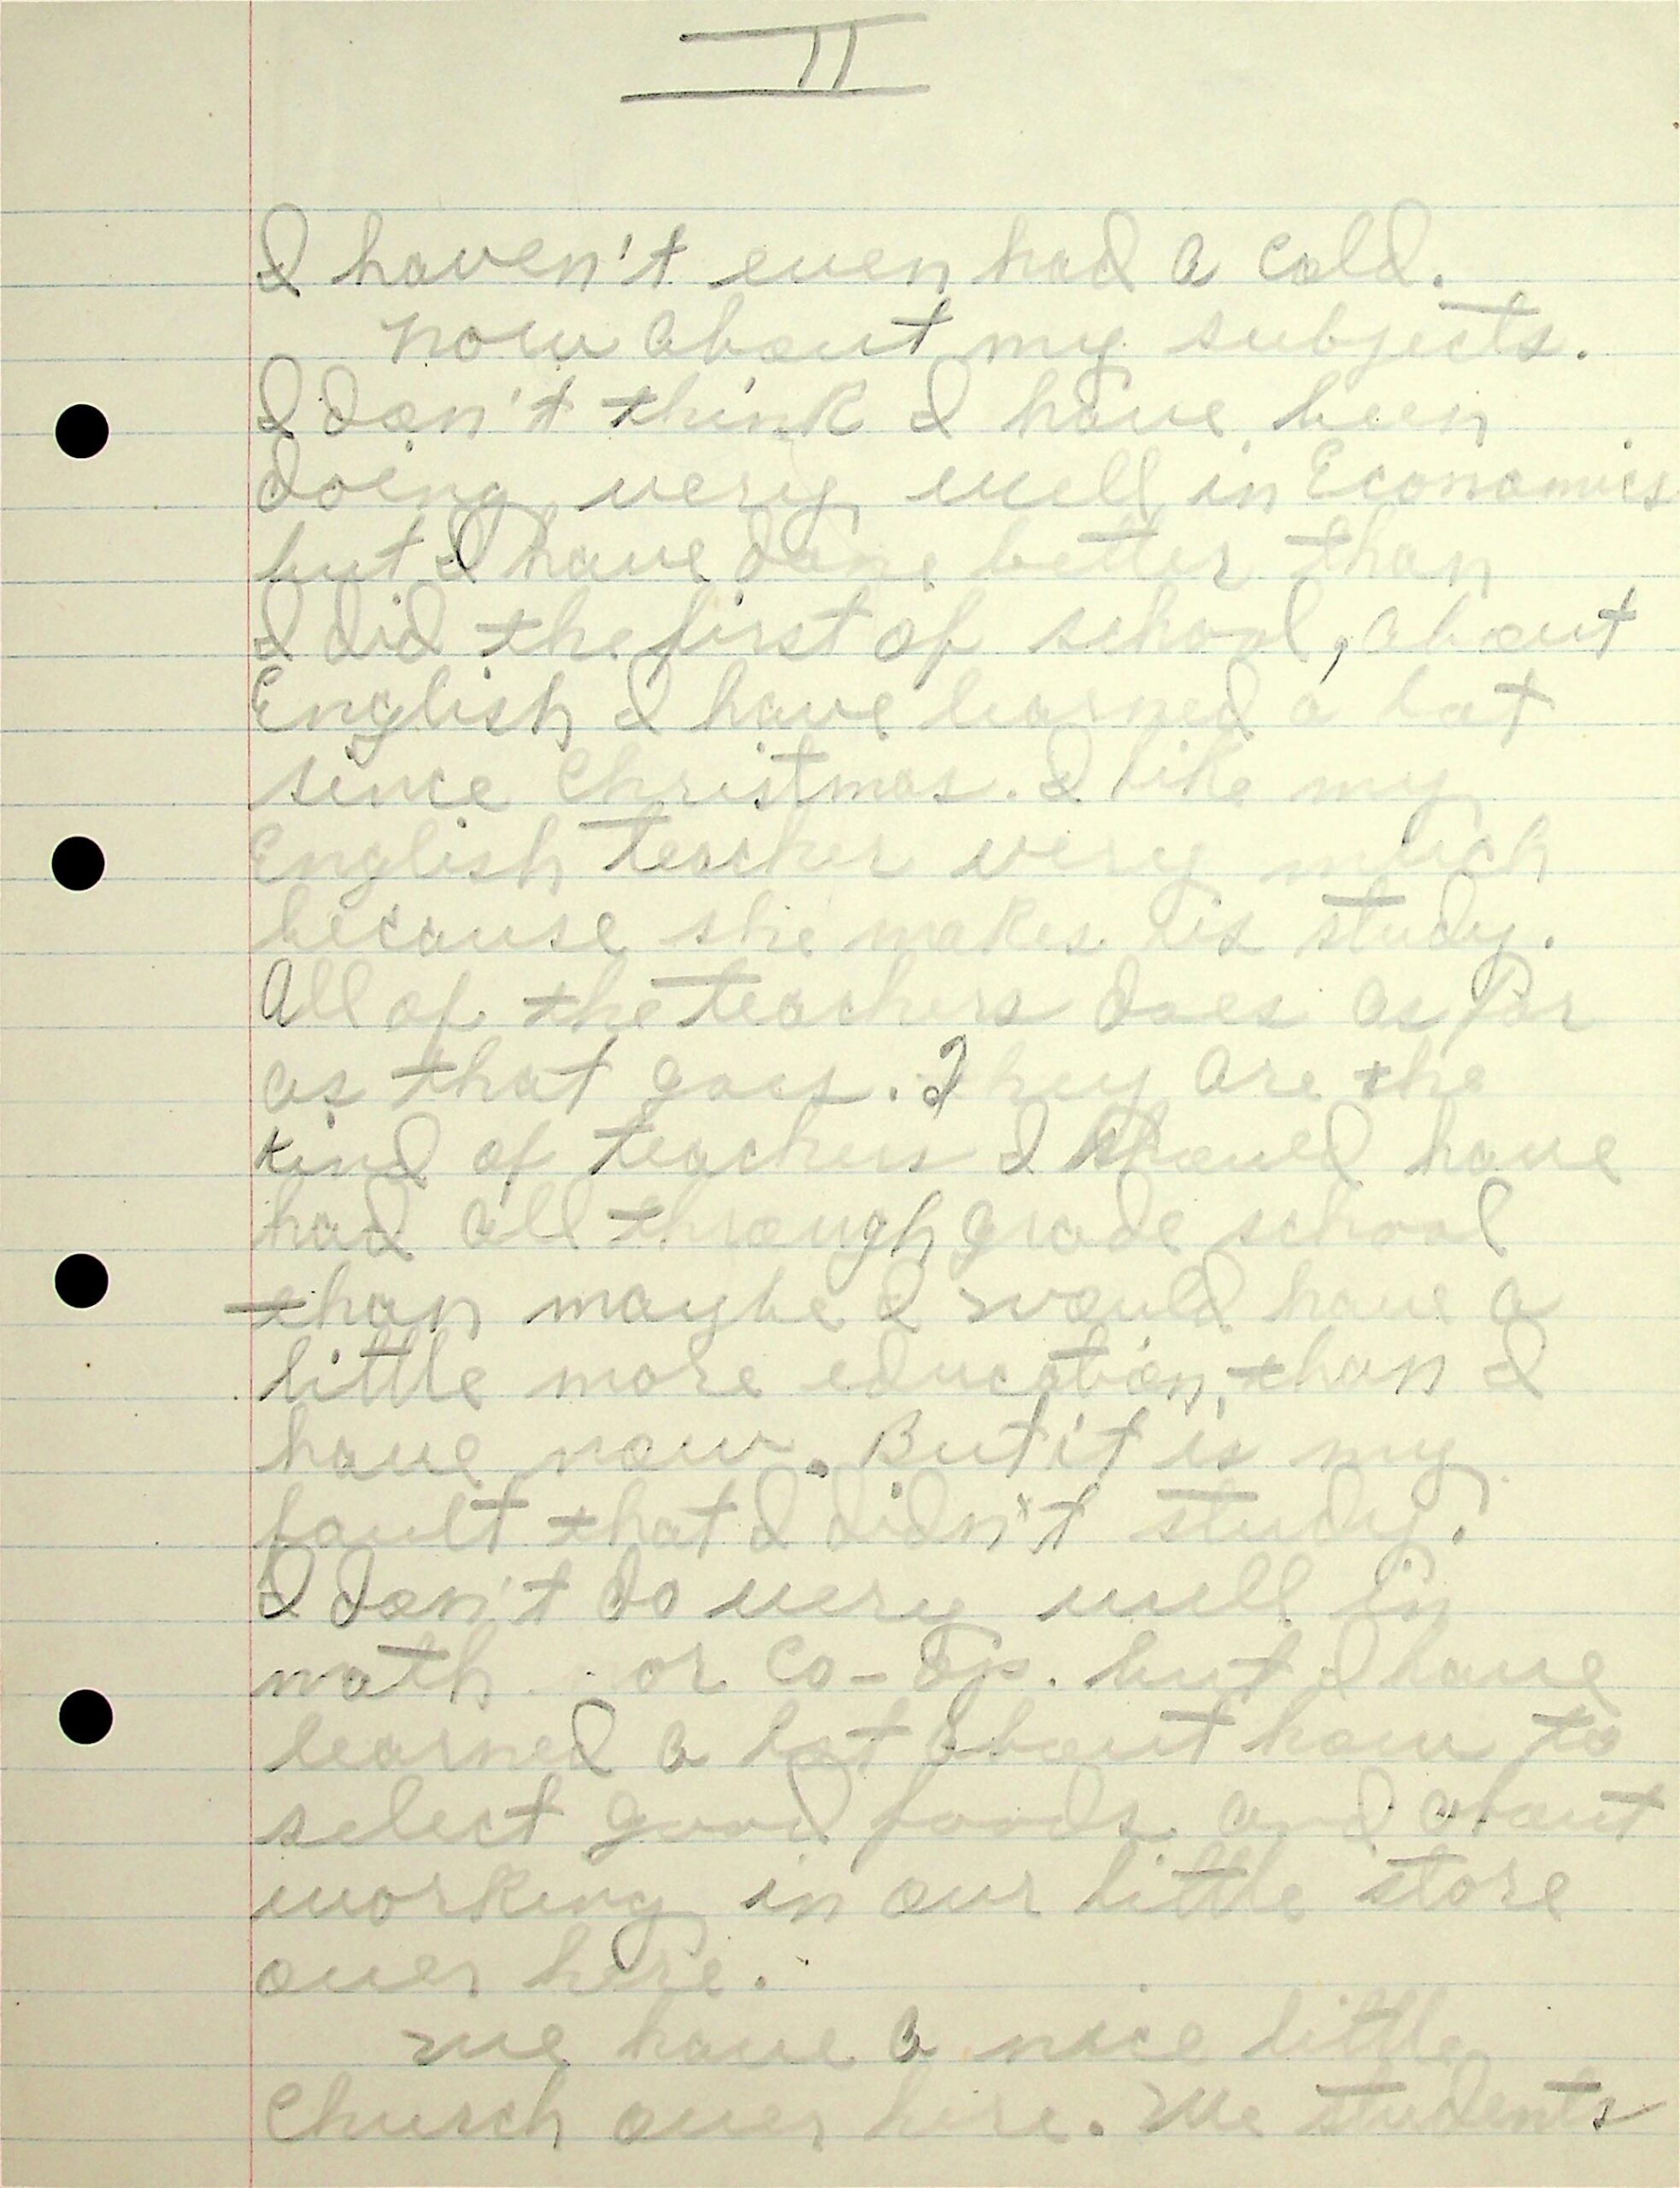 II
I haven't even had a cold.
Now about my subjects.
I don't think I have been
doing very well in Economics
but I have done better than
I did the first of school, about
English I have learned a lot
since Christmas. I like my
English teacher very much
because she makes us study.
All of the teachers does as far
as that goes. They are the
kind of teachers I should have
had all through grade school
than maybe I would have a
little more education, than I
have now. But it is my
fault that I didn't study.
I don't do very well in
math or Co-Op. but I have
learned a lot about how to
select good foods and about
working in our little store
over here.
We have a nice little
Church over here. We students